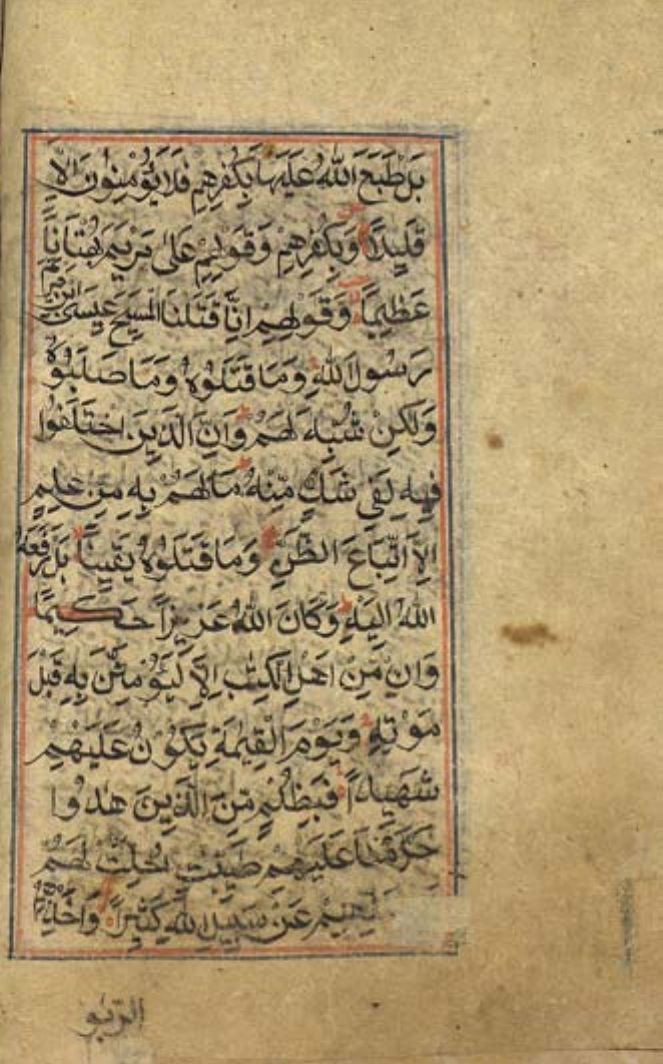 بَلْ طَبَعَ اللّٰهُ عَلَيْهَا بِكُفْرِهِمْ فَلَا يُؤْمِنُونَ اِلَّا
قَلِيلًا وَبِكُفْرِهِمْ وَقَوْلِهِمْ عَلٰى مَرْيَمَ بُهْتَانًا
عَظِيمًا وَقَوْلِهِمْ اِنَّا قَتَلْنَا الْمَسِيحَ عِيسَى ابْنَ مَرْيَمَ
رَسُولَ اللّٰهِ وَمَا قَتَلُوهُ وَمَا صَلَبُوهُ
وَلٰكِنْ شُبِّهَ لَهُمْ وَاِنَّ الَّذِينَ اخْتَلَفُوا
فِيهِ لَفِي شَكٍّ مِنْهُ مَا لَهُمْ بِهِ مِنْ عِلْمٍ
اِلَّا اتِّبَاعَ الظَّنِّ وَمَا قَتَلُوهُ يَقِينًا بَلْ رَفَعَهُ
اللّٰهُ اِلَيْهِ وَكَانَ اللّٰهُ عَزِيزًا حَكِيمًا
وَاِنْ مِنْ اَهْلِ الْكِتٰبِ اِلَّا لَيُؤْمِنَنَّ بِهِ قَبْلَ
مَوْتِهِ وَيَوْمَ الْقِيٰمَةِ يَكُوْنُ عَلَيْهِمْ
شَهِيدًا فَبِظُلْمٍ مِنَ الَّذِينَ هٰدُوا
حَرَّمْنَا عَلَيْهِمْ طَيِّبٰتٍ اُحِلَّتْ لَهُمْ
عَنْ سَبِيلِ اللّٰهِ كَثِيرًا وَاَخْذِهِمُ
الرّبو